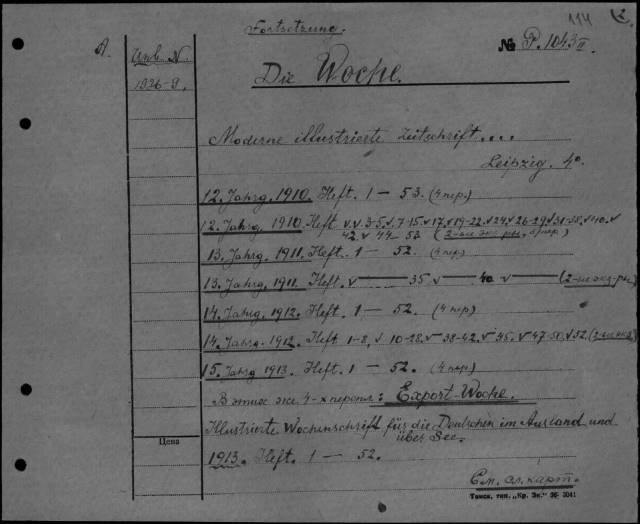 Fortsetzung.
114
2
A.
Инв. N.
1926-9.
№ P. 1043 II
Die Woche.
Moderne illustrierte Zeitschrift...
Leipzig. 4°
12. Jahrg. 1910. Heft. 1 — 53. (4 пер.)
12. Jahrg. 1910. Heft v. v. 3-5. v 7-15. v 17. v 19-22. v 24. v 26-29 v 31-38. v 40. v
42. v 44-53 (2-ые экз-ры, пер.)
13. Jahrg. 1911. Heft. 1 — 52. (4 пер.)
13. Jahrg. 1911. Heft. v — 35 v — 40 v — (2-ые экз-ры)
14. Jahrg. 1912. Heft. 1 — 52. (4 пер.)
14. Jahrg. 1912. Heft. 1-8, v 10-28. v 38-42. v 45. v 47-50. v 52. (2-ые экз.)
15. Jahrg 1913. Heft. 1 — 52. (4 пер.)
В этих же 4-х перепл.: Export-Woche.
Illustrierte Wochenschrift für die Deutschen im Ausland und
über See.
Цена
1913. Heft. 1 — 52.
См. сл. карт.
Томск, тип. „Кр. Зн." 36- 3041